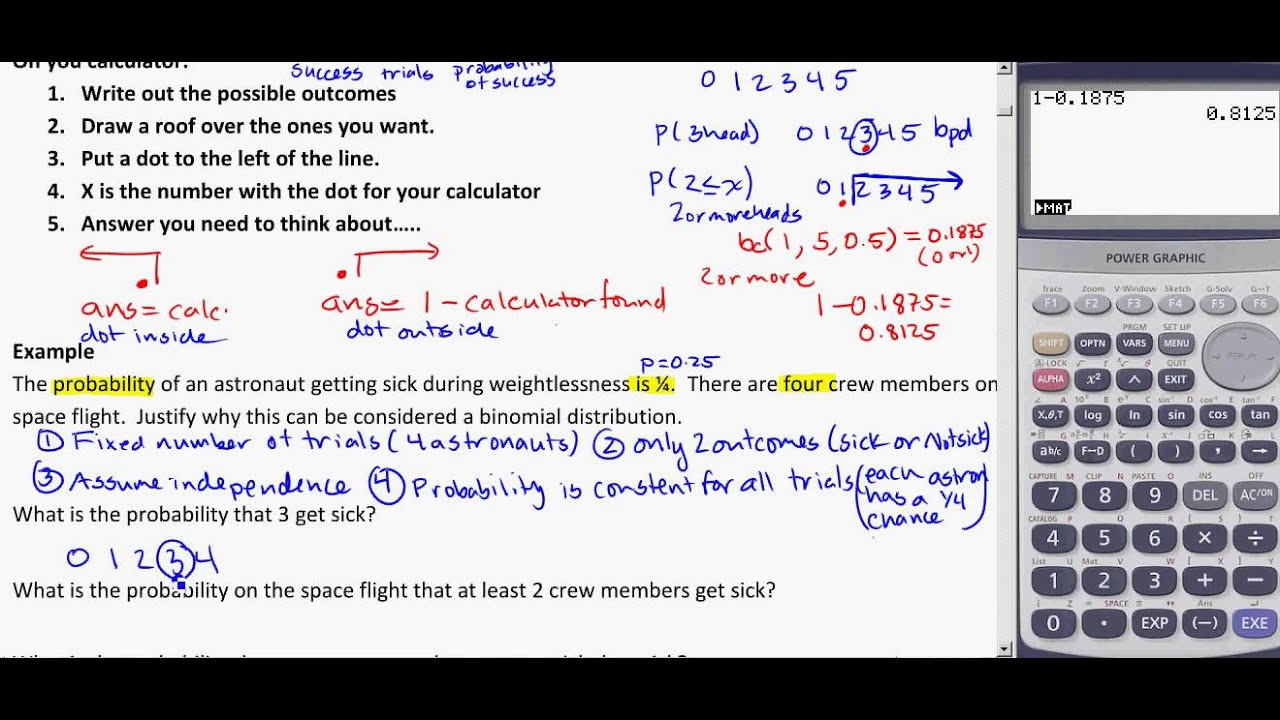 On you calculator:
success trials probability of success
0 1 2 3 4 5
1. Write out the possible outcomes
2. Draw a roof over the ones you want.
3. Put a dot to the left of the line.
4. X is the number with the dot for your calculator
5. Answer you need to think about.....
P(3head) 0 1 2 3 4 5 bpd
P(2≤x) 0 1 2 3 4 5
2 or more heads
bc(1, 5, 0.5) = 0.1875
(0 or 1)
2 or more
1 - 0.1875 =
0.8125
ans = calc.
dot inside
ans = 1 - calculator found
dot outside
Example
p=0.25
The probability of an astronaut getting sick during weightlessness is ¼. There are four crew members on
space flight. Justify why this can be considered a binomial distribution.
① Fixed number of trials (4 astronauts) ② only 2 outcomes (sick or Not sick)
③ Assume independence ④ Probability is constent for all trials (each astron
has a 1/4
chance)
What is the probability that 3 get sick?
0 1 2 3 4
What is the probability on the space flight that at least 2 crew members get sick?
1-0.1875
0.8125
▶MAT
POWER GRAPHIC
Trace Zoom V-Window Sketch G-Solv G↔T
F1 F2 F3 F4 F5 F6
PRGM SET UP
SHIFT OPTN VARS MENU
REPLAY
A-LOCK QUIT
ALPHA x² ^ EXIT
X,θ,T log ln sin cos tan
ab/c F↔D ( ) , →
CAPTURE CLIP PASTE INS OFF
7 8 9 DEL AC/ON
CATALOG
4 5 6 × ÷
List Mat
1 2 3 + −
SPACE Ans
0 . EXP (−) EXE